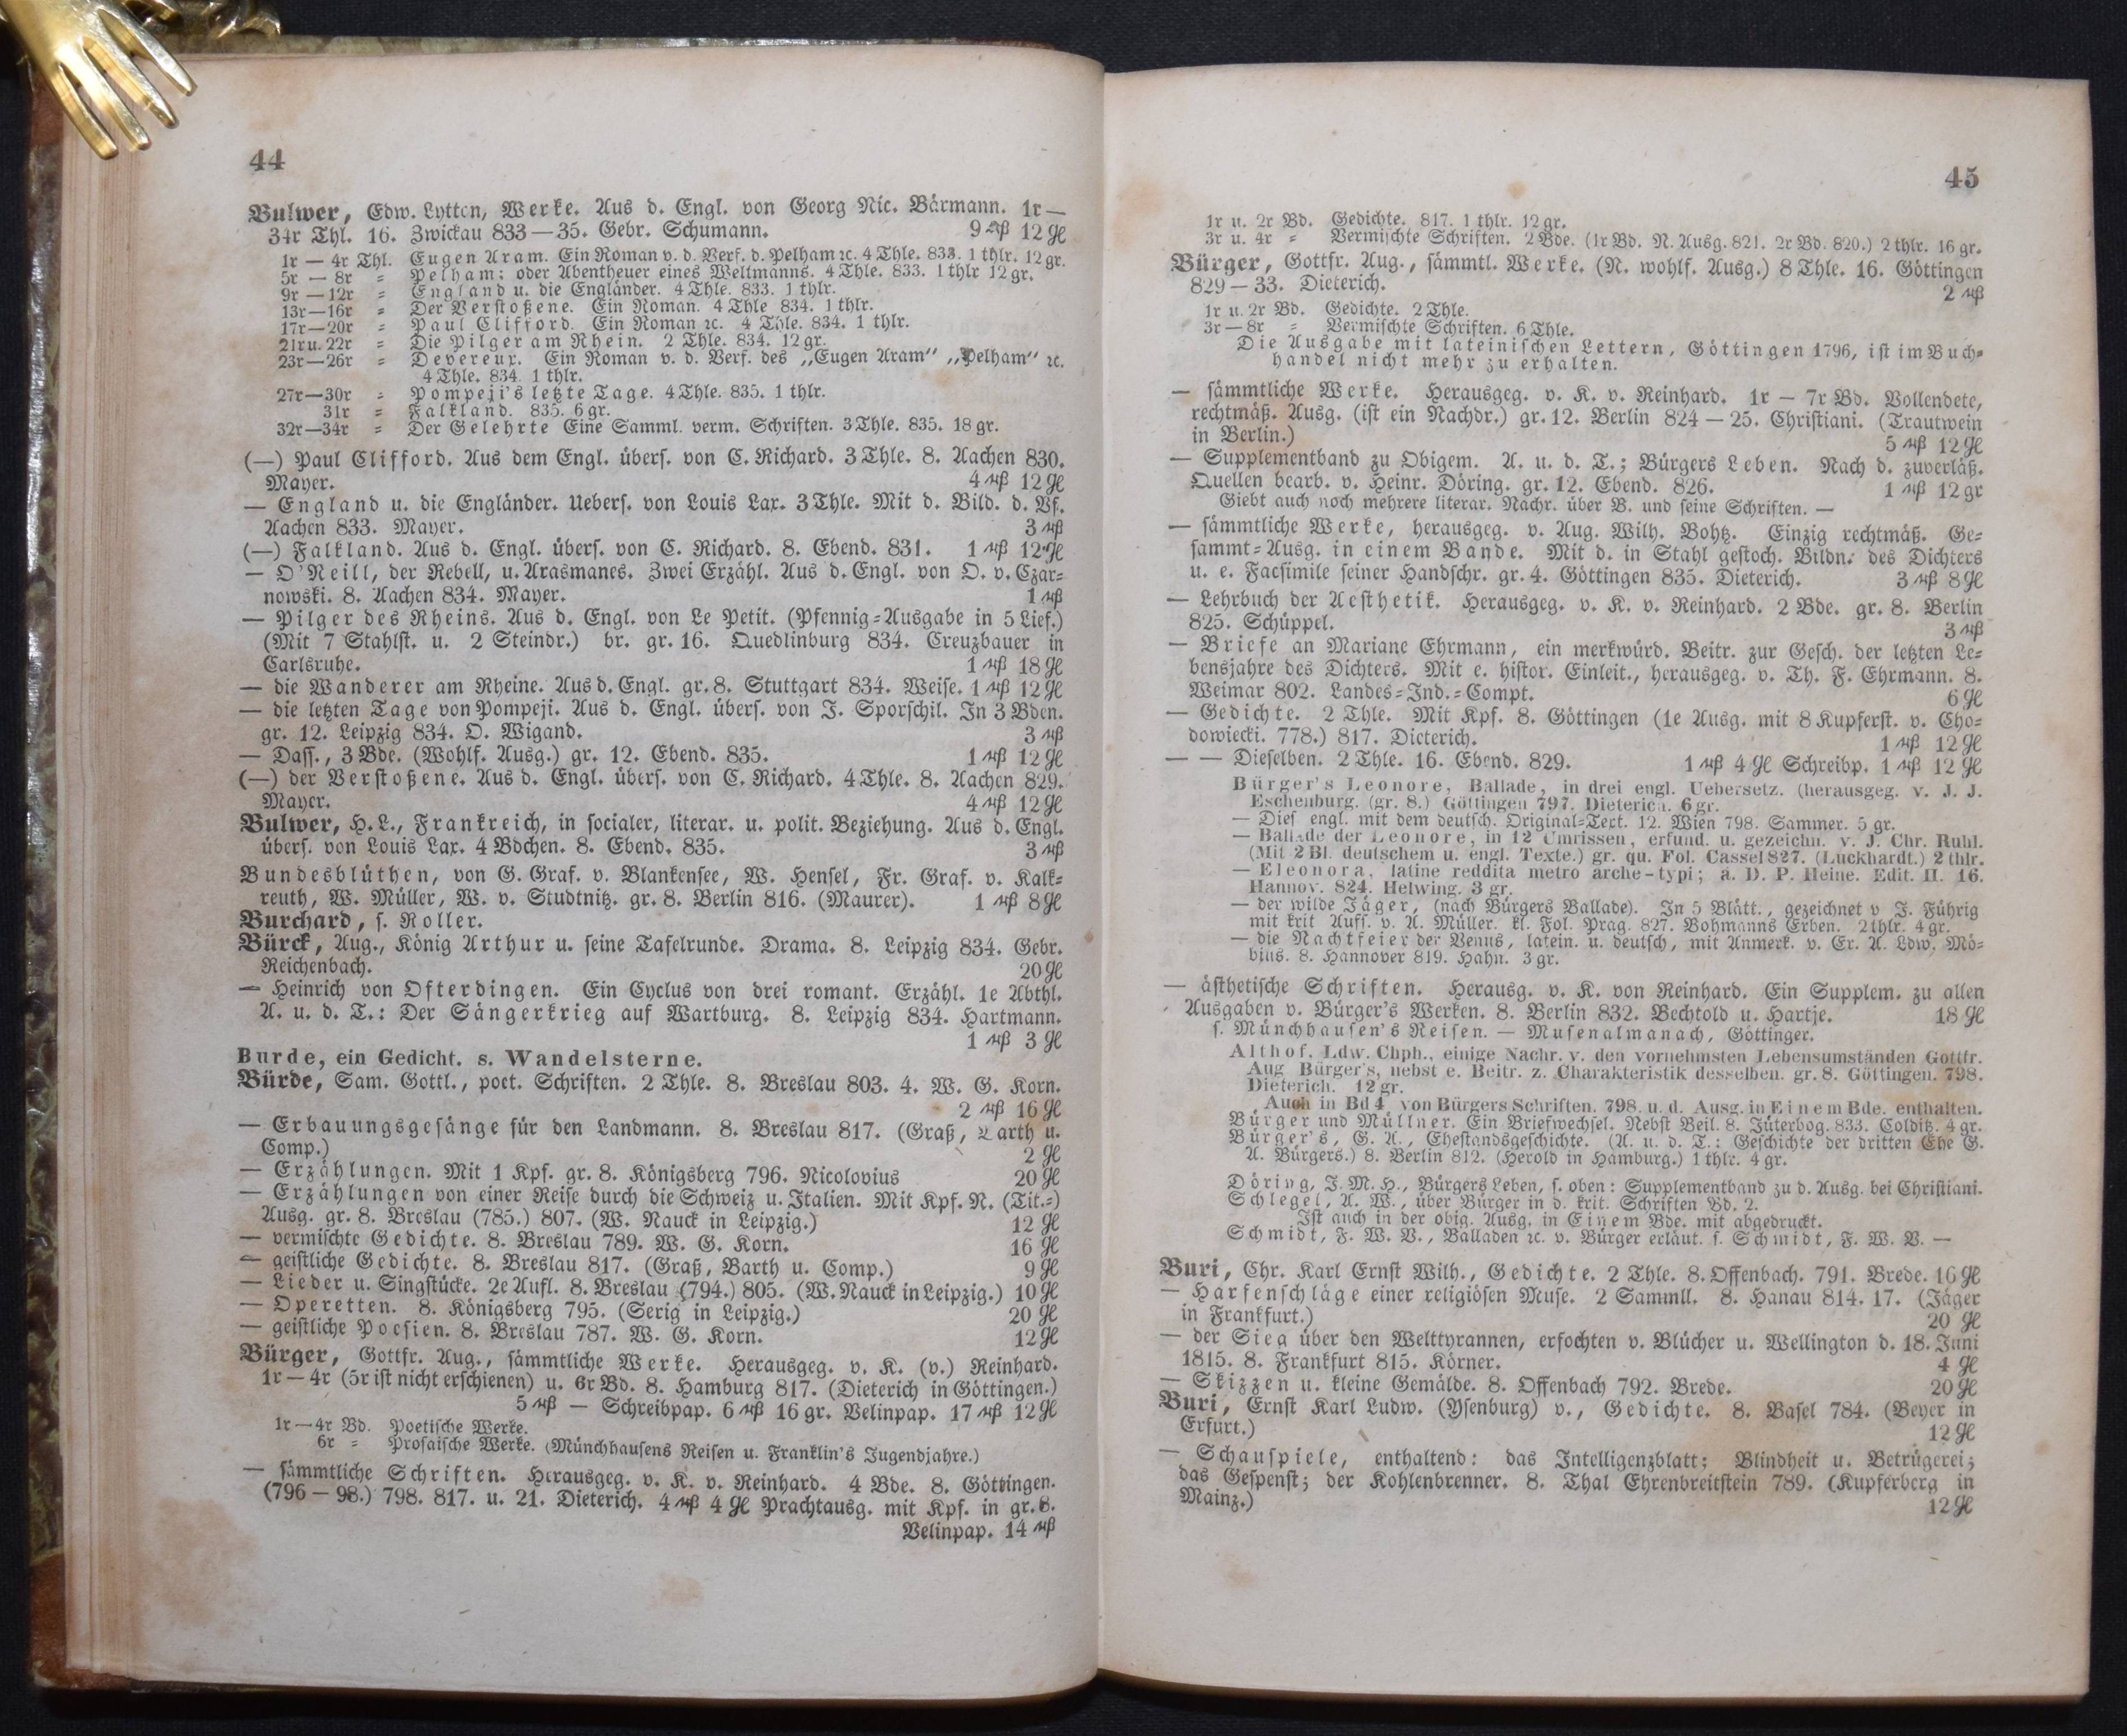 44
Bulwer, Edw. Lytton, Werke. Aus d. Engl. von Georg Nic. Bärmann. 1r—
34r Thl. 16. Zwickau 833—35. Gebr. Schumann. 9 ₰ 12 gl
1r — 4r Thl. Eugen Aram. Ein Roman v. d. Verf. d. Pelham ꝛc. 4 Thle. 833. 1 thlr. 12 gr.
5r — 8r = Pelham; oder Abentheuer eines Weltmanns. 4 Thle. 833. 1 thlr 12 gr.
9r — 12r = England u. die Engländer. 4 Thle. 833. 1 thlr.
13r—16r = Der Verstoßene. Ein Roman. 4 Thle 834. 1 thlr.
17r—20r = Paul Clifford. Ein Roman ꝛc. 4 Thle. 834. 1 thlr.
21r u. 22r = Die Pilger am Rhein. 2 Thle. 834. 12 gr.
23r—26r = Devereux. Ein Roman v. d. Verf. des „Eugen Aram“ „Pelham“ ꝛc.
4 Thle. 834. 1 thlr.
27r—30r = Pompeji's letzte Tage. 4 Thle. 835. 1 thlr.
31r = Falkland. 835. 6 gr.
32r—34r = Der Gelehrte Eine Samml. verm. Schriften. 3 Thle. 835. 18 gr.
(—) Paul Clifford. Aus dem Engl. übers. von C. Richard. 3 Thle. 8. Aachen 830.
Mayer. 4 ₰ 12 gl
— England u. die Engländer. Uebers. von Louis Lax. 3 Thle. Mit d. Bild. d. Vf.
Aachen 833. Mayer. 3 ₰
(—) Falkland. Aus d. Engl. übers. von C. Richard. 8. Ebend. 831. 1 ₰ 12 gl
— O'Neill, der Rebell, u. Arasmanes. Zwei Erzähl. Aus d. Engl. von O. v. Czar=
nowski. 8. Aachen 834. Mayer. 1 ₰
— Pilger des Rheins. Aus d. Engl. von Le Petit. (Pfennig=Ausgabe in 5 Lief.)
(Mit 7 Stahlst. u. 2 Steindr.) br. gr. 16. Quedlinburg 834. Creuzbauer in
Carlsruhe. 1 ₰ 18 gl
— die Wanderer am Rheine. Aus d. Engl. gr. 8. Stuttgart 834. Weise. 1 ₰ 12 gl
— die letzten Tage von Pompeji. Aus d. Engl. übers. von J. Sporschil. In 3 Bden.
gr. 12. Leipzig 834. O. Wigand. 3 ₰
— Dass., 3 Bde. (Wohlf. Ausg.) gr. 12. Ebend. 835. 1 ₰ 12 gl
(—) der Verstoßene. Aus d. Engl. übers. von C. Richard. 4 Thle. 8. Aachen 829.
Mayer. 4 ₰ 12 gl
Bulwer, H. L., Frankreich, in socialer, literar. u. polit. Beziehung. Aus d. Engl.
übers. von Louis Lax. 4 Bdchen. 8. Ebend. 835. 3 ₰
Bundesblüthen, von G. Graf. v. Blankensee, W. Hensel, Fr. Graf. v. Kalk=
reuth, W. Müller, W. v. Studtnitz. gr. 8. Berlin 816. (Maurer). 1 ₰ 8 gl
Burchard, s. Roller.
Bürck, Aug., König Arthur u. seine Tafelrunde. Drama. 8. Leipzig 834. Gebr.
Reichenbach. 20 gl
— Heinrich von Ofterdingen. Ein Cyclus von drei romant. Erzähl. 1e Abthl.
A. u. d. T.: Der Sängerkrieg auf Wartburg. 8. Leipzig 834. Hartmann.
1 ₰ 3 gl
Burde, ein Gedicht. s. Wandelsterne.
Bürde, Sam. Gottl., poet. Schriften. 2 Thle. 8. Breslau 803. 4. W. G. Korn.
2 ₰ 16 gl
— Erbauungsgesänge für den Landmann. 8. Breslau 817. (Graß, Barth u.
Comp.) 2 gl
— Erzählungen. Mit 1 Kpf. gr. 8. Königsberg 796. Nicolovius 20 gl
— Erzählungen von einer Reise durch die Schweiz u. Italien. Mit Kpf. N. (Tit.=)
Ausg. gr. 8. Breslau (785.) 807. (W. Nauck in Leipzig.) 12 gl
— vermischte Gedichte. 8. Breslau 789. W. G. Korn. 16 gl
— geistliche Gedichte. 8. Breslau 817. (Graß, Barth u. Comp.) 9 gl
— Lieder u. Singstücke. 2e Aufl. 8. Breslau (794.) 805. (W. Nauck in Leipzig.) 10 gl
— Operetten. 8. Königsberg 795. (Serig in Leipzig.) 20 gl
— geistliche Poesien. 8. Breslau 787. W. G. Korn. 12 gl
Bürger, Gottfr. Aug., sämmtliche Werke. Herausgeg. v. K. (v.) Reinhard.
1r—4r (5r ist nicht erschienen) u. 6r Bd. 8. Hamburg 817. (Dieterich in Göttingen.)
5 ₰ — Schreibpap. 6 ₰ 16 gr. Velinpap. 17 ₰ 12 gl
1r—4r Bd. Poetische Werke.
6r = Prosaische Werke. (Münchhausens Reisen u. Franklin's Jugendjahre.)
— sämmtliche Schriften. Herausgeg. v. K. v. Reinhard. 4 Bde. 8. Göttingen.
(796—98.) 798. 817. u. 21. Dieterich. 4 ₰ 4 gl Prachtausg. mit Kpf. in gr. 8.
Velinpap. 14 ₰
45
1r u. 2r Bd. Gedichte. 817. 1 thlr. 12 gr.
3r u. 4r = Vermischte Schriften. 2 Bde. (1r Bd. N. Ausg. 821. 2r Bd. 820.) 2 thlr. 16 gr.
Bürger, Gottfr. Aug., sämmtl. Werke. (N. wohlf. Ausg.) 8 Thle. 16. Göttingen
829—33. Dieterich. 2 ₰
1r u. 2r Bd. Gedichte. 2 Thle.
3r—8r = Vermischte Schriften. 6 Thle.
Die Ausgabe mit lateinischen Lettern, Göttingen 1796, ist im Buch=
handel nicht mehr zu erhalten.
— sämmtliche Werke. Herausgeg. v. K. v. Reinhard. 1r — 7r Bd. Vollendete,
rechtmäß. Ausg. (ist ein Nachdr.) gr. 12. Berlin 824—25. Christiani. (Trautwein
in Berlin.) 5 ₰ 12 gl
— Supplementband zu Obigem. A. u. d. T.; Bürgers Leben. Nach d. zuverläß.
Quellen bearb. v. Heinr. Döring. gr. 12. Ebend. 826. 1 ₰ 12 gr
Giebt auch noch mehrere literar. Nachr. über B. und seine Schriften. —
— sämmtliche Werke, herausgeg. v. Aug. Wilh. Bohtz. Einzig rechtmäß. Ge=
sammt=Ausg. in einem Bande. Mit d. in Stahl gestoch. Bildn. des Dichters
u. e. Facsimile seiner Handschr. gr. 4. Göttingen 835. Dieterich. 3 ₰ 8 gl
— Lehrbuch der Aesthetik. Herausgeg. v. K. v. Reinhard. 2 Bde. gr. 8. Berlin
825. Schüppel. 3 ₰
— Briefe an Mariane Ehrmann, ein merkwürd. Beitr. zur Gesch. der letzten Le=
bensjahre des Dichters. Mit e. histor. Einleit., herausgeg. v. Th. F. Ehrmann. 8.
Weimar 802. Landes=Ind.=Compt. 6 gl
— Gedichte. 2 Thle. Mit Kpf. 8. Göttingen (1e Ausg. mit 8 Kupferst. v. Cho=
dowiecki. 778.) 817. Dieterich. 1 ₰ 12 gl
— — Dieselben. 2 Thle. 16. Ebend. 829. 1 ₰ 4 gl Schreibp. 1 ₰ 12 gl
Bürger's Leonore, Ballade, in drei engl. Uebersetz. (herausgeg. v. J. J.
Eschenburg. (gr. 8.) Göttingen 797. Dieterich. 6 gr.
— Dies engl. mit dem deutsch. Original=Text. 12. Wien 798. Sammer. 5 gr.
— Ballade der Leonore, in 12 Umrissen, erfund. u. gezeichn. v. J. Chr. Ruhl.
(Mit 2 Bl. deutschem u. engl. Texte.) gr. qu. Fol. Cassel 827. (Luckhardt.) 2 thlr.
— Eleonora, latine reddita metro arche-typi; a. D. P. Heine. Edit. II. 16.
Hannov. 824. Helwing. 3 gr.
— der wilde Jäger, (nach Bürgers Ballade). In 5 Blätt., gezeichnet v J. Führig
mit krit Auff. v. A. Müller. kl. Fol. Prag. 827. Bohmanns Erben. 2 thlr. 4 gr.
— die Nachtfeier der Venus, latein. u. deutsch, mit Anmerk. v. Er. A. Ldw. Mö=
bius. 8. Hannover 819. Hahn. 3 gr.
— ästhetische Schriften. Herausg. v. K. von Reinhard. Ein Supplem. zu allen
Ausgaben v. Bürger's Werken. 8. Berlin 832. Bechtold u. Hartje. 18 gl
s. Münchhausen's Reisen. — Musenalmanach, Göttinger.
Althof, Ldw. Chph., einige Nachr. v. den vornehmsten Lebensumständen Gottfr.
Aug Bürger's, nebst e. Beitr. z. Charakteristik desselben. gr. 8. Göttingen. 798.
Dieterich. 12 gr.
Auch in Bd 4 von Bürgers Schriften. 798. u. d. Ausg. in Einem Bde. enthalten.
Bürger und Müllner. Ein Briefwechsel. Nebst Beil. 8. Jüterbog. 833. Colditz. 4 gr.
Bürger's, G. A., Ehestandsgeschichte. (A. u. d. T.: Geschichte der dritten Ehe G.
A. Bürgers.) 8. Berlin 812. (Herold in Hamburg.) 1 thlr. 4 gr.
Döring, J. M. H., Bürgers Leben, s. oben: Supplementband zu d. Ausg. bei Christiani.
Schlegel, A. W., über Bürger in d. krit. Schriften Bd. 2.
Ist auch in der obig. Ausg. in Einem Bde. mit abgedruckt.
Schmidt, F. W. V., Balladen ꝛc. v. Bürger erläut. s. Schmidt, F. W. V. —
Buri, Chr. Karl Ernst Wilh., Gedichte. 2 Thle. 8. Offenbach. 791. Brede. 16 gl
— Harfenschläge einer religiösen Muse. 2 Sammll. 8. Hanau 814. 17. (Jäger
in Frankfurt.) 20 gl
— der Sieg über den Welttyrannen, erfochten v. Blücher u. Wellington d. 18. Juni
1815. 8. Frankfurt 815. Körner. 4 gl
— Skizzen u. kleine Gemälde. 8. Offenbach 792. Brede. 20 gl
Buri, Ernst Karl Ludw. (Ysenburg) v., Gedichte. 8. Basel 784. (Beyer in
Erfurt.) 12 gl
— Schauspiele, enthaltend: das Intelligenzblatt; Blindheit u. Betrügerei;
das Gespenst; der Kohlenbrenner. 8. Thal Ehrenbreitstein 789. (Kupferberg in
Mainz.) 12 gl